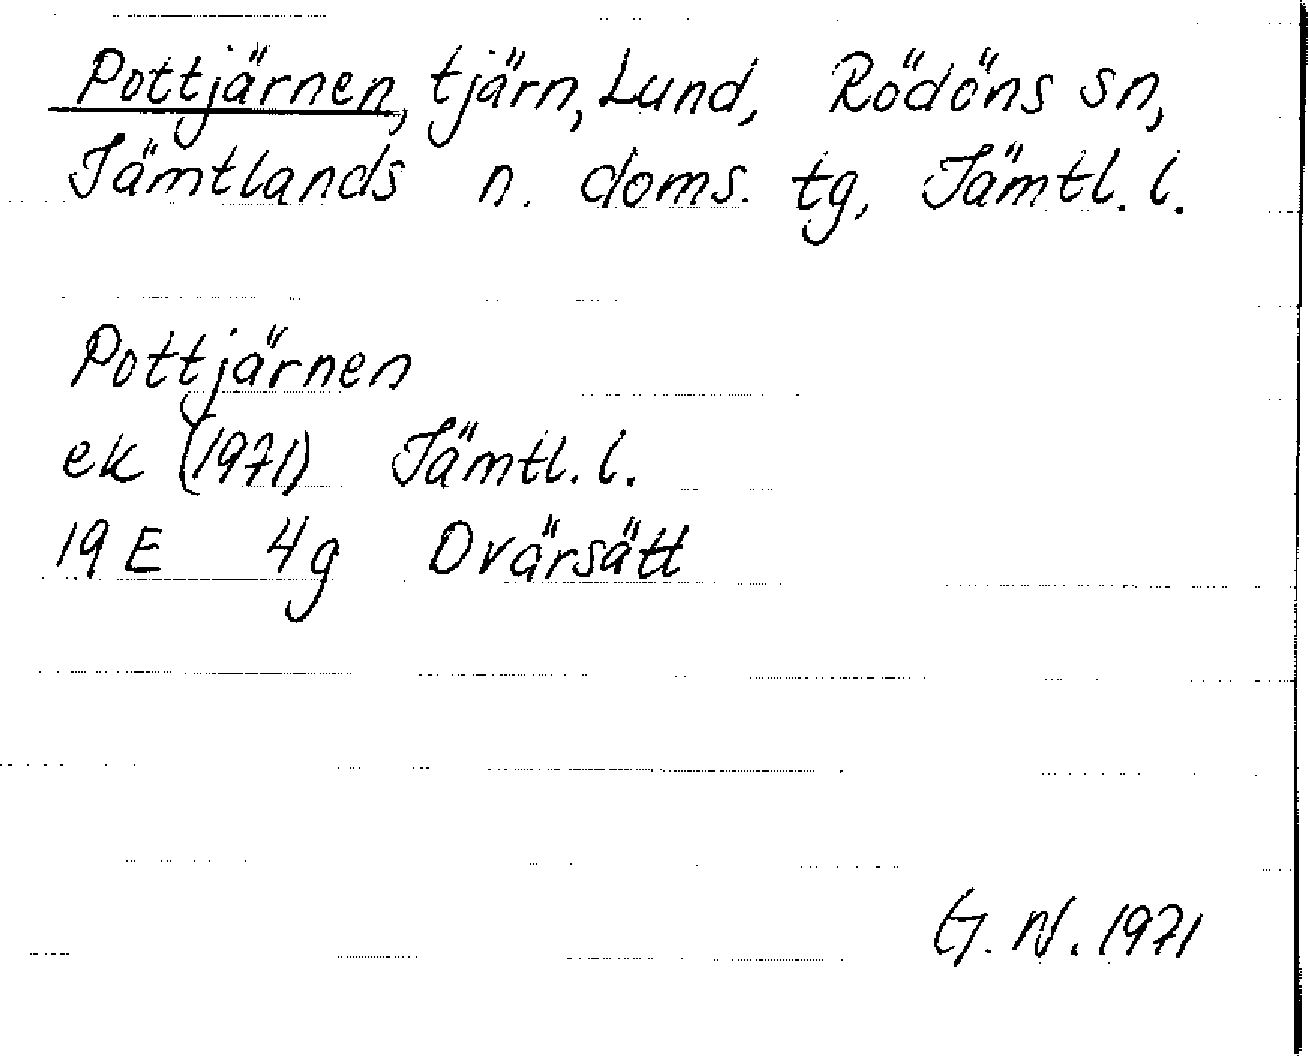 Pottjärnen, tjärn, Lund, Rödöns sn,
Jämtlands n. doms. tg, Jämtl. l.
Pottjärnen
ek (1971) Jämtl. l.
19 E 4g Dvärsätt
G. N. 1971